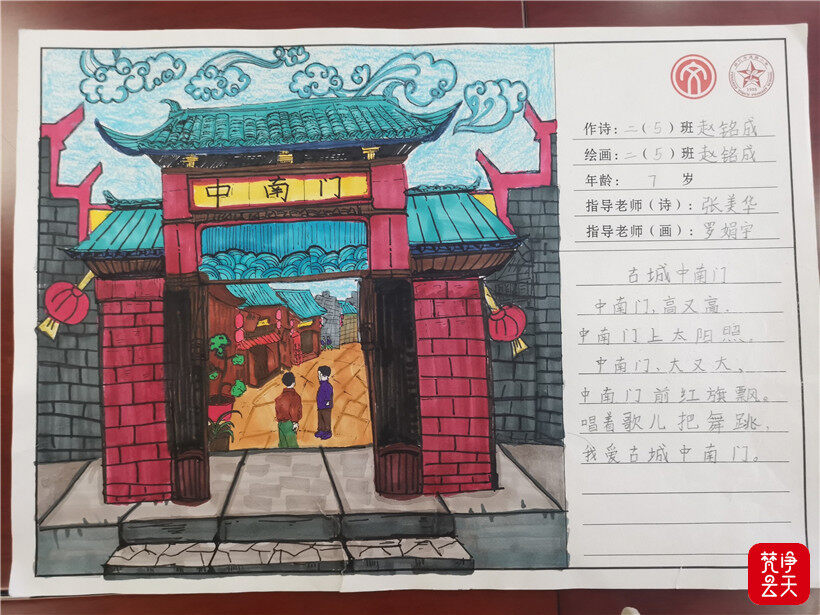 中南门
作诗：二（5）班赵铭成
绘画：二（5）班赵铭成
年龄： 7 岁
指导老师（诗）：张美华
指导老师（画）：罗娟宇
古城中南门
中南门，高又高，
中南门上太阳照。
中南门、大又大、
中南门前红旗飘。
唱着歌儿把舞跳，
我爱古城中南门。
梵净
云天